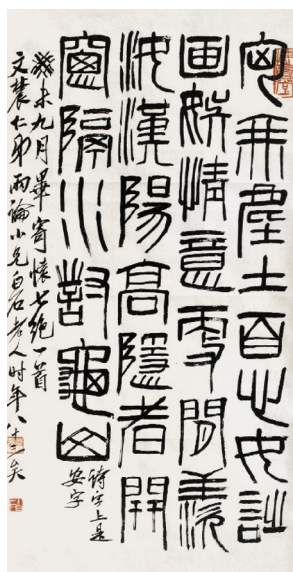 匈無塵土百安詩
画娛情意更閒羨
汝漢陽高隱者開
窗隔川對龜山
詩字上是
安字
癸未九月寄懷七絕一首
文農仁弟兩論小兄白石老人时年八十三矣